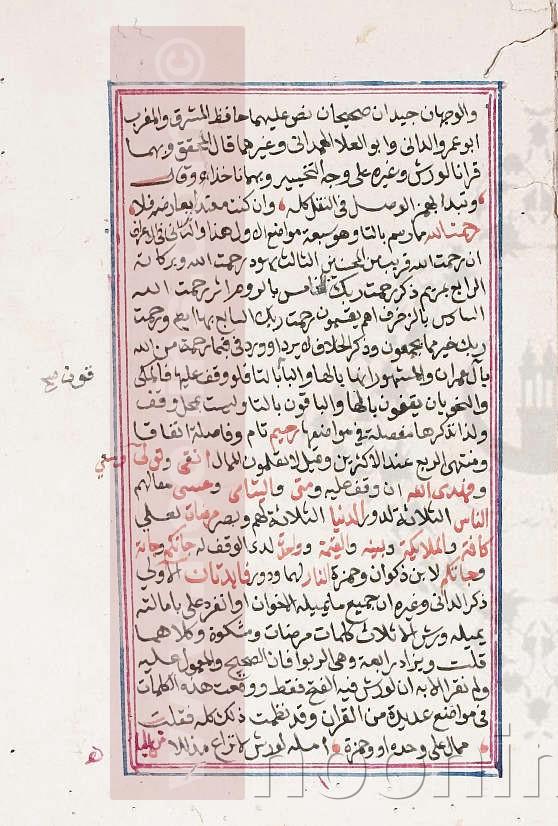 والوجهان جيدان صحيحان نص عليهما حافظ المشرق والمغرب
ابو عمرو الداني وابو العلا الهمداني وغيرهما قال المحقق وبهما
قرانا لورش وغيره على وجه التخيير وبهما ناخذ
وتبدا لهم الوصل في النقل كله وان كنت معتدا بعارضه فلا
رحمت الله مما رسم بالتا وهو سبعة مواضع الاول هذا والثاني في الاعراف
ان رحمت الله قريب من المحسنين الثالث بهود رحمت الله وبركاته
الرابع بمريم ذكر رحمت ربك الخامس بالروم اثر رحمت الله
السادس بالزخرف اهم يقسمون رحمت ربك السابع بها ايضا ورحمت
ربك خير مما يجمعون وذكر الخلاف لا يرد في فبما رحمت من الله
بآل عمران والمشهور انها بالها والتا فلو وقف عليها فالمكي
والنحويان يقفون بالها والباقون بالتا وليست بمحل وقف
ولذا نذكرها مفصلة في مواضعها رحيم تام وفاصلة اتفاقا
ومنتهى الربع عند الاكثرين وقيل الممال اتقى وتولى وسعى
وهدى الله ان وقف عليه ومتى واليتامى وعسى معا لهم
الناس الثلاثة لدور الدنيا الثلاثة لهم وبصر مرضات لعلي
كافة والملائكة وبينة والقيمة وواحدة لدى الوقف له جاتكم وجاته
وجاتكم لابن ذكوان وحمزة النار لهما ودور فايدتان الاولى
ذكر الداني وغيره ان جميع ما يميله الاخوان او انفرد علي بامالته
يميله ورش الا ثلاث كلمات مرضات ومشكوة وكلاهما
قلت ويزاد رابعة وهي الربوا فان الصحيح والمعمول عليه
ولم نقرا الا به ان لورش فيه الفتح فقط ووقعت هذه الكلمات
في مواضع عديدة من القران وقد نظمت ذلك كله فقلت
ممال علي وحده او وحمزة امله لورش لا تراع
noorlin